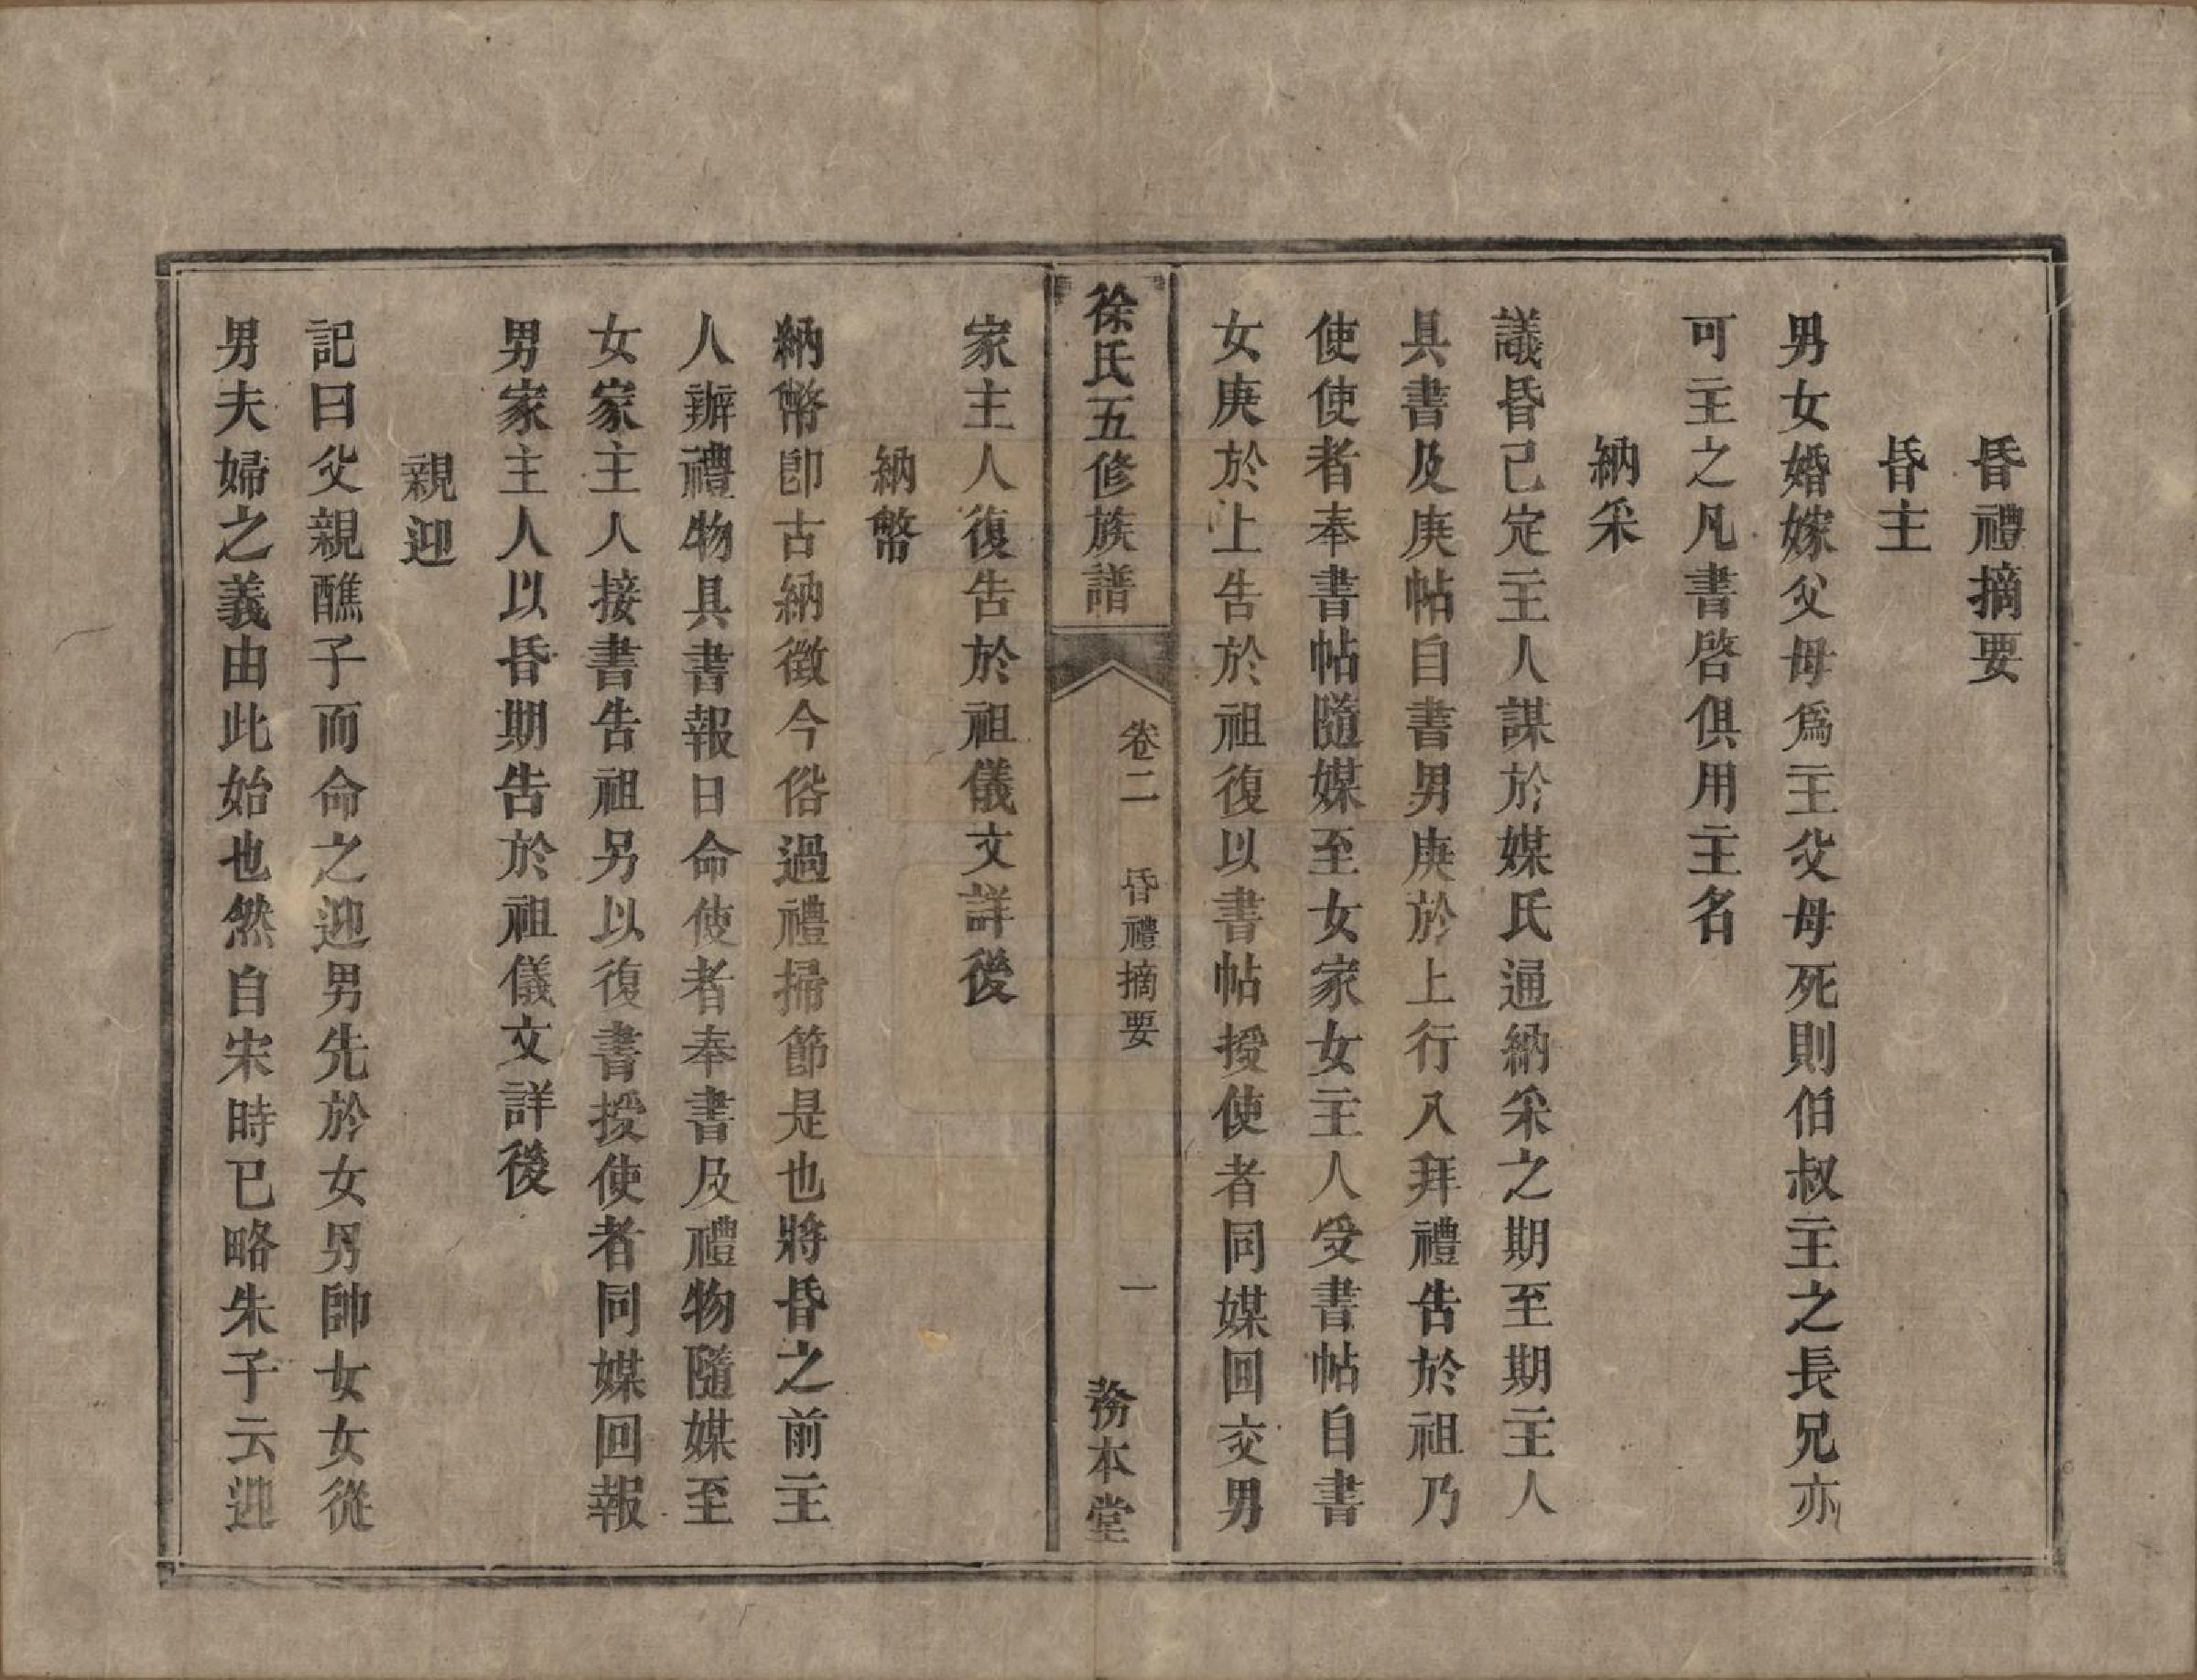 昏禮摘要
昏主
男女婚嫁父母爲主父母死則伯叔主之長兄亦
可主之凡書啓俱用主名
納采
議昏已定主人謀於媒氏通納采之期至期主人
具書及庚帖自書男庚於上行入拜禮告於祖乃
使使者奉書帖隨媒至女家女主人受書帖自書
女庚於上告於祖復以書帖授使者同媒回交男
徐氏五修族譜
卷二
昏禮摘要
一
務本堂
家主人復告於祖儀文詳後
納幣
納幣卽古納徵今俗過禮掃節是也將昏之前主
人辦禮物具書報日命使者奉書及禮物隨媒至
女家主人接書告祖另以復書授使者同媒回報
男家主人以昏期告於祖儀文詳後
親迎
記曰父親醮子而命之迎男先於女男帥女女從
男夫婦之義由此始也然自宋時已略朱子云迎